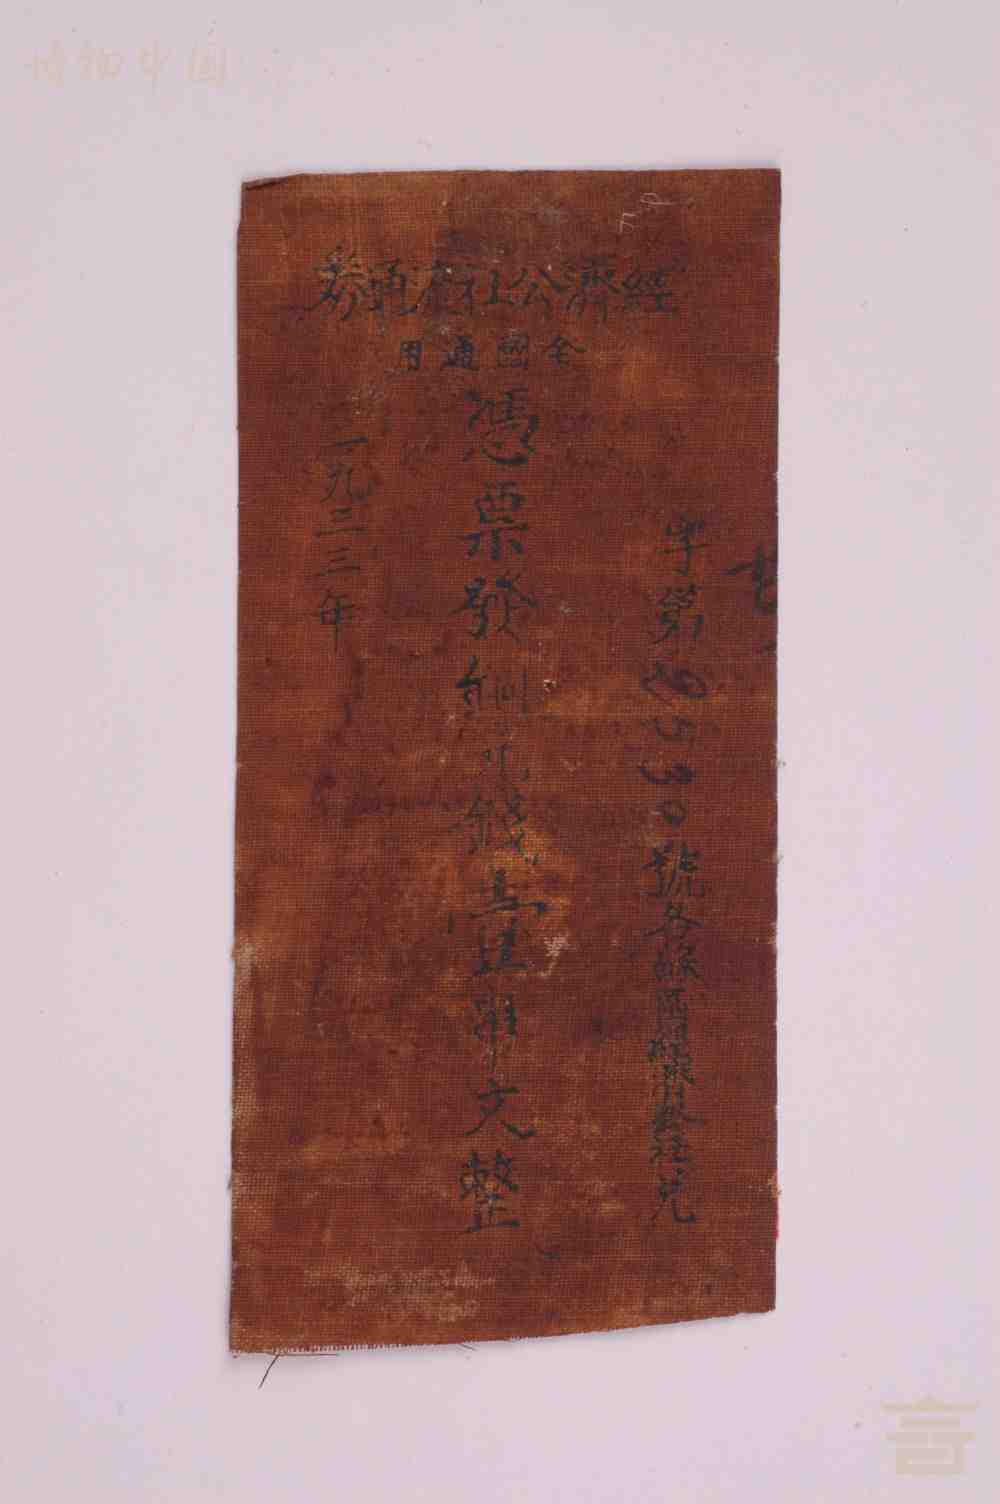 博物中国
經濟公社流通券
全國通用
字第 530號各縣區經濟公社兌
憑票發銅元錢 串文整
一九三三年